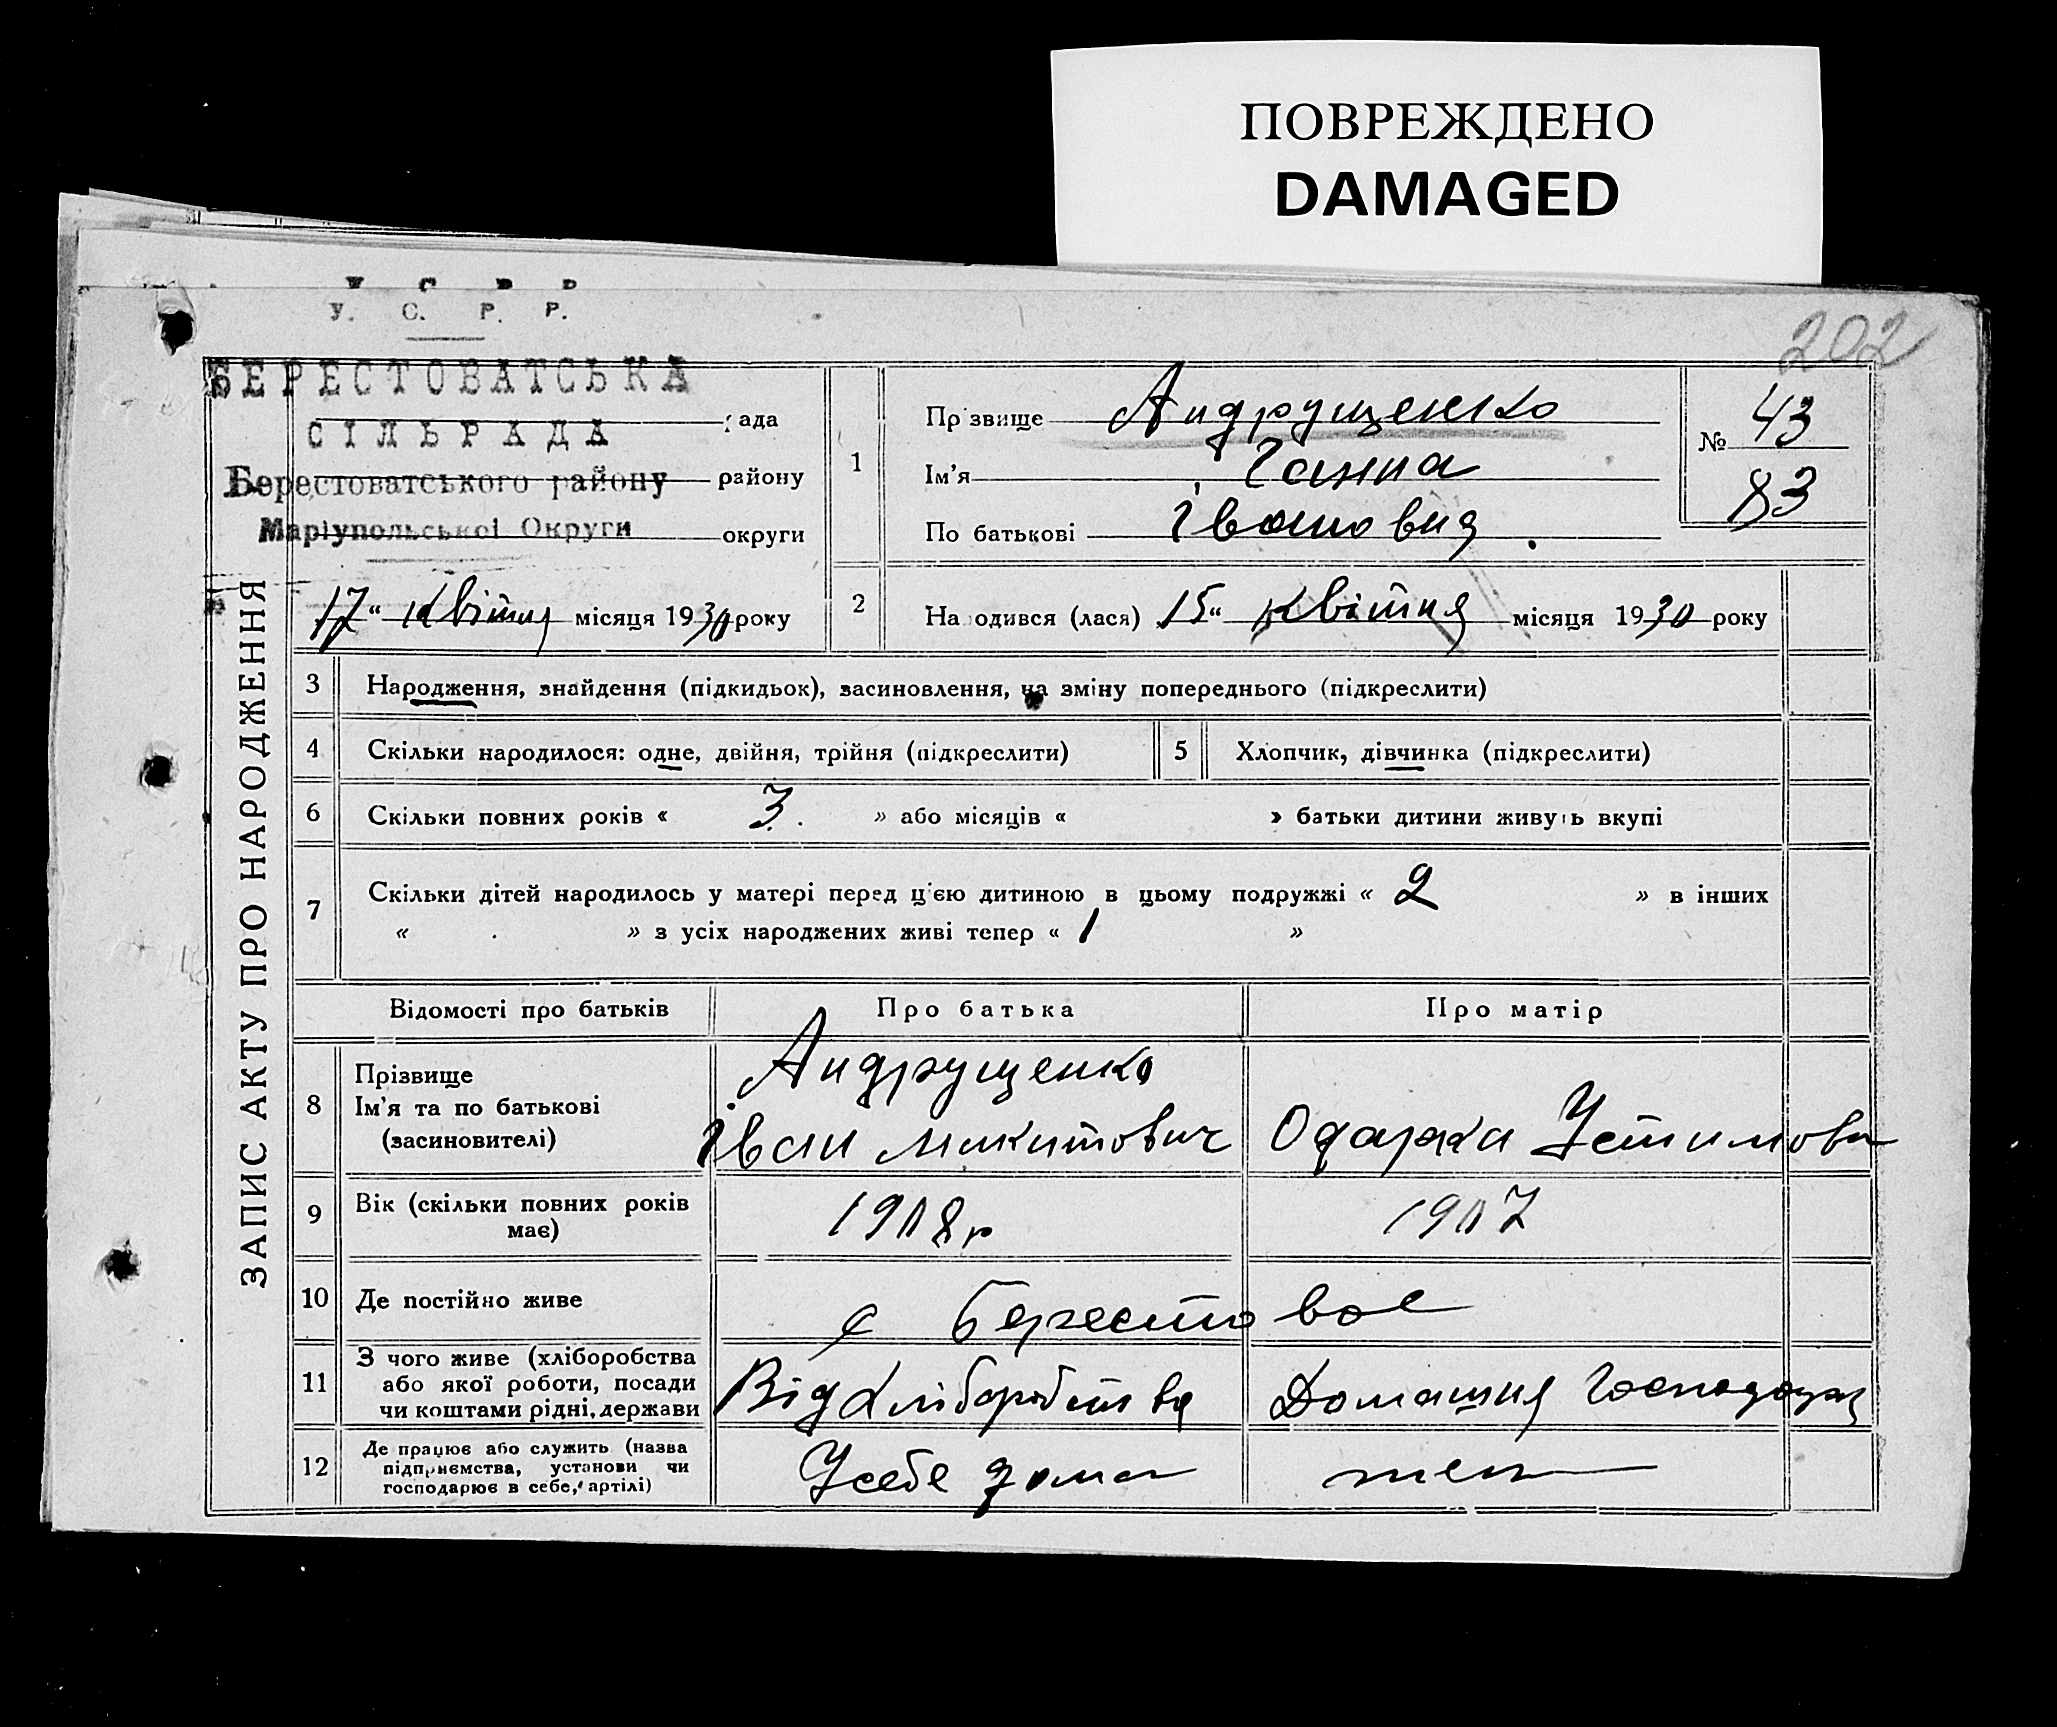 ПОВРЕЖДЕНО
DAMAGED
У С Р Р
У. С. Р. Р.
202
БЕРЕСТОВАТСЬКА
рада
СІЛЬРАДА
Берестоватського району району
Маріупольської Округи округи
„17“ Квітня місяця 1930 року
ЗАПИС АКТУ ПРО НАРОДЖЕННЯ
1
Прізвище Андрущенко
Ім'я Ганна
По батькові Івановна
№ 43
83
2 Народився (лася) „15“ Квітня місяця 1930 року
3 Народження, знайдення (підкидьок), засиновлення, на зміну попереднього (підкреслити)
4 Скільки народилося: одне, двійня, трійня (підкреслити) 5 Хлопчик, дівчинка (підкреслити)
6 Скільки повних років « 3. » або місяців « » батьки дитини живуть вкупі
7 Скільки дітей народилось у матері перед ц'єю дитиною в цьому подружжі « 2 » в інших
« » з усіх народжених живі тепер « 1 »
Відомості про батьків Про батька Про матір
8 Прізвище
Ім'я та по батькові
(засиновителі)
Андрущенко
Іван Микитович Одарка Устимова
9 Вік (скільки повних років
має)
1908р 1907
10 Де постійно живе с Берестовое
11 З чого живе (хліборобства
або якої роботи, посади
чи коштами рідні, держави
Від Хліборобства Домашня Господарка
12 Де працює або служить (назва
підприємства, установи чи
господарює в себе, артілі)
У себе дома